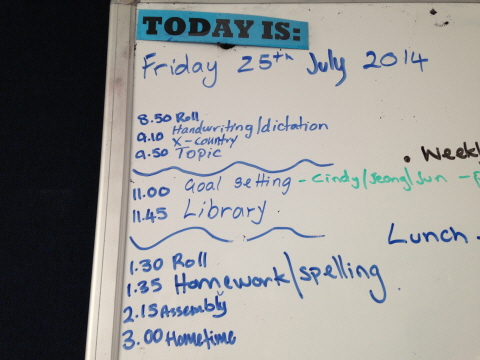 TODAY IS:
Friday 25th July 2014
8.50 Roll
9.10 Handwriting/dictation
x-country
9.50 Topic
• Weekly
11.00 Goal setting - Cindy/Jeong/Jun -
11.45 Library.
Lunch -
1.30 Roll
1.35 Homework/spelling
2.15 Assembly
3.00 Hometime